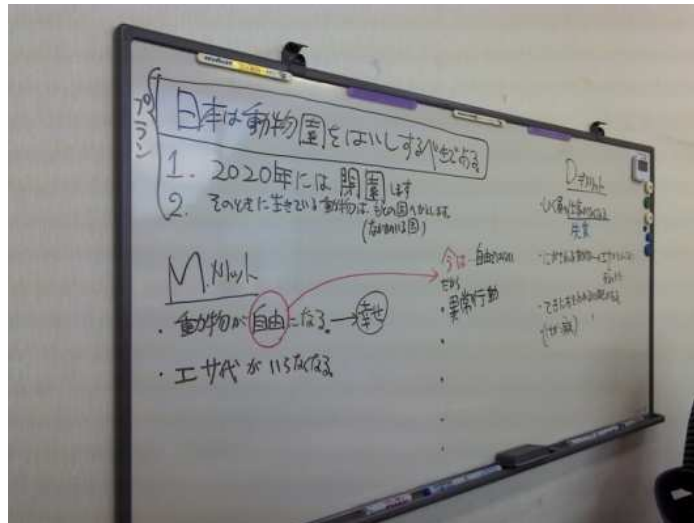 プラン
日本は動物園をはいしするべきである
1. 2020年には閉園します
2. そのときに生きている動物は、もとの国へかえします。
(なかまのいる国)
M.メリット
・動物が自由になる。→幸せ
・エサ代がいらなくなる。
今は…自由じゃない
だから
・異常行動
D.デメリット
失業